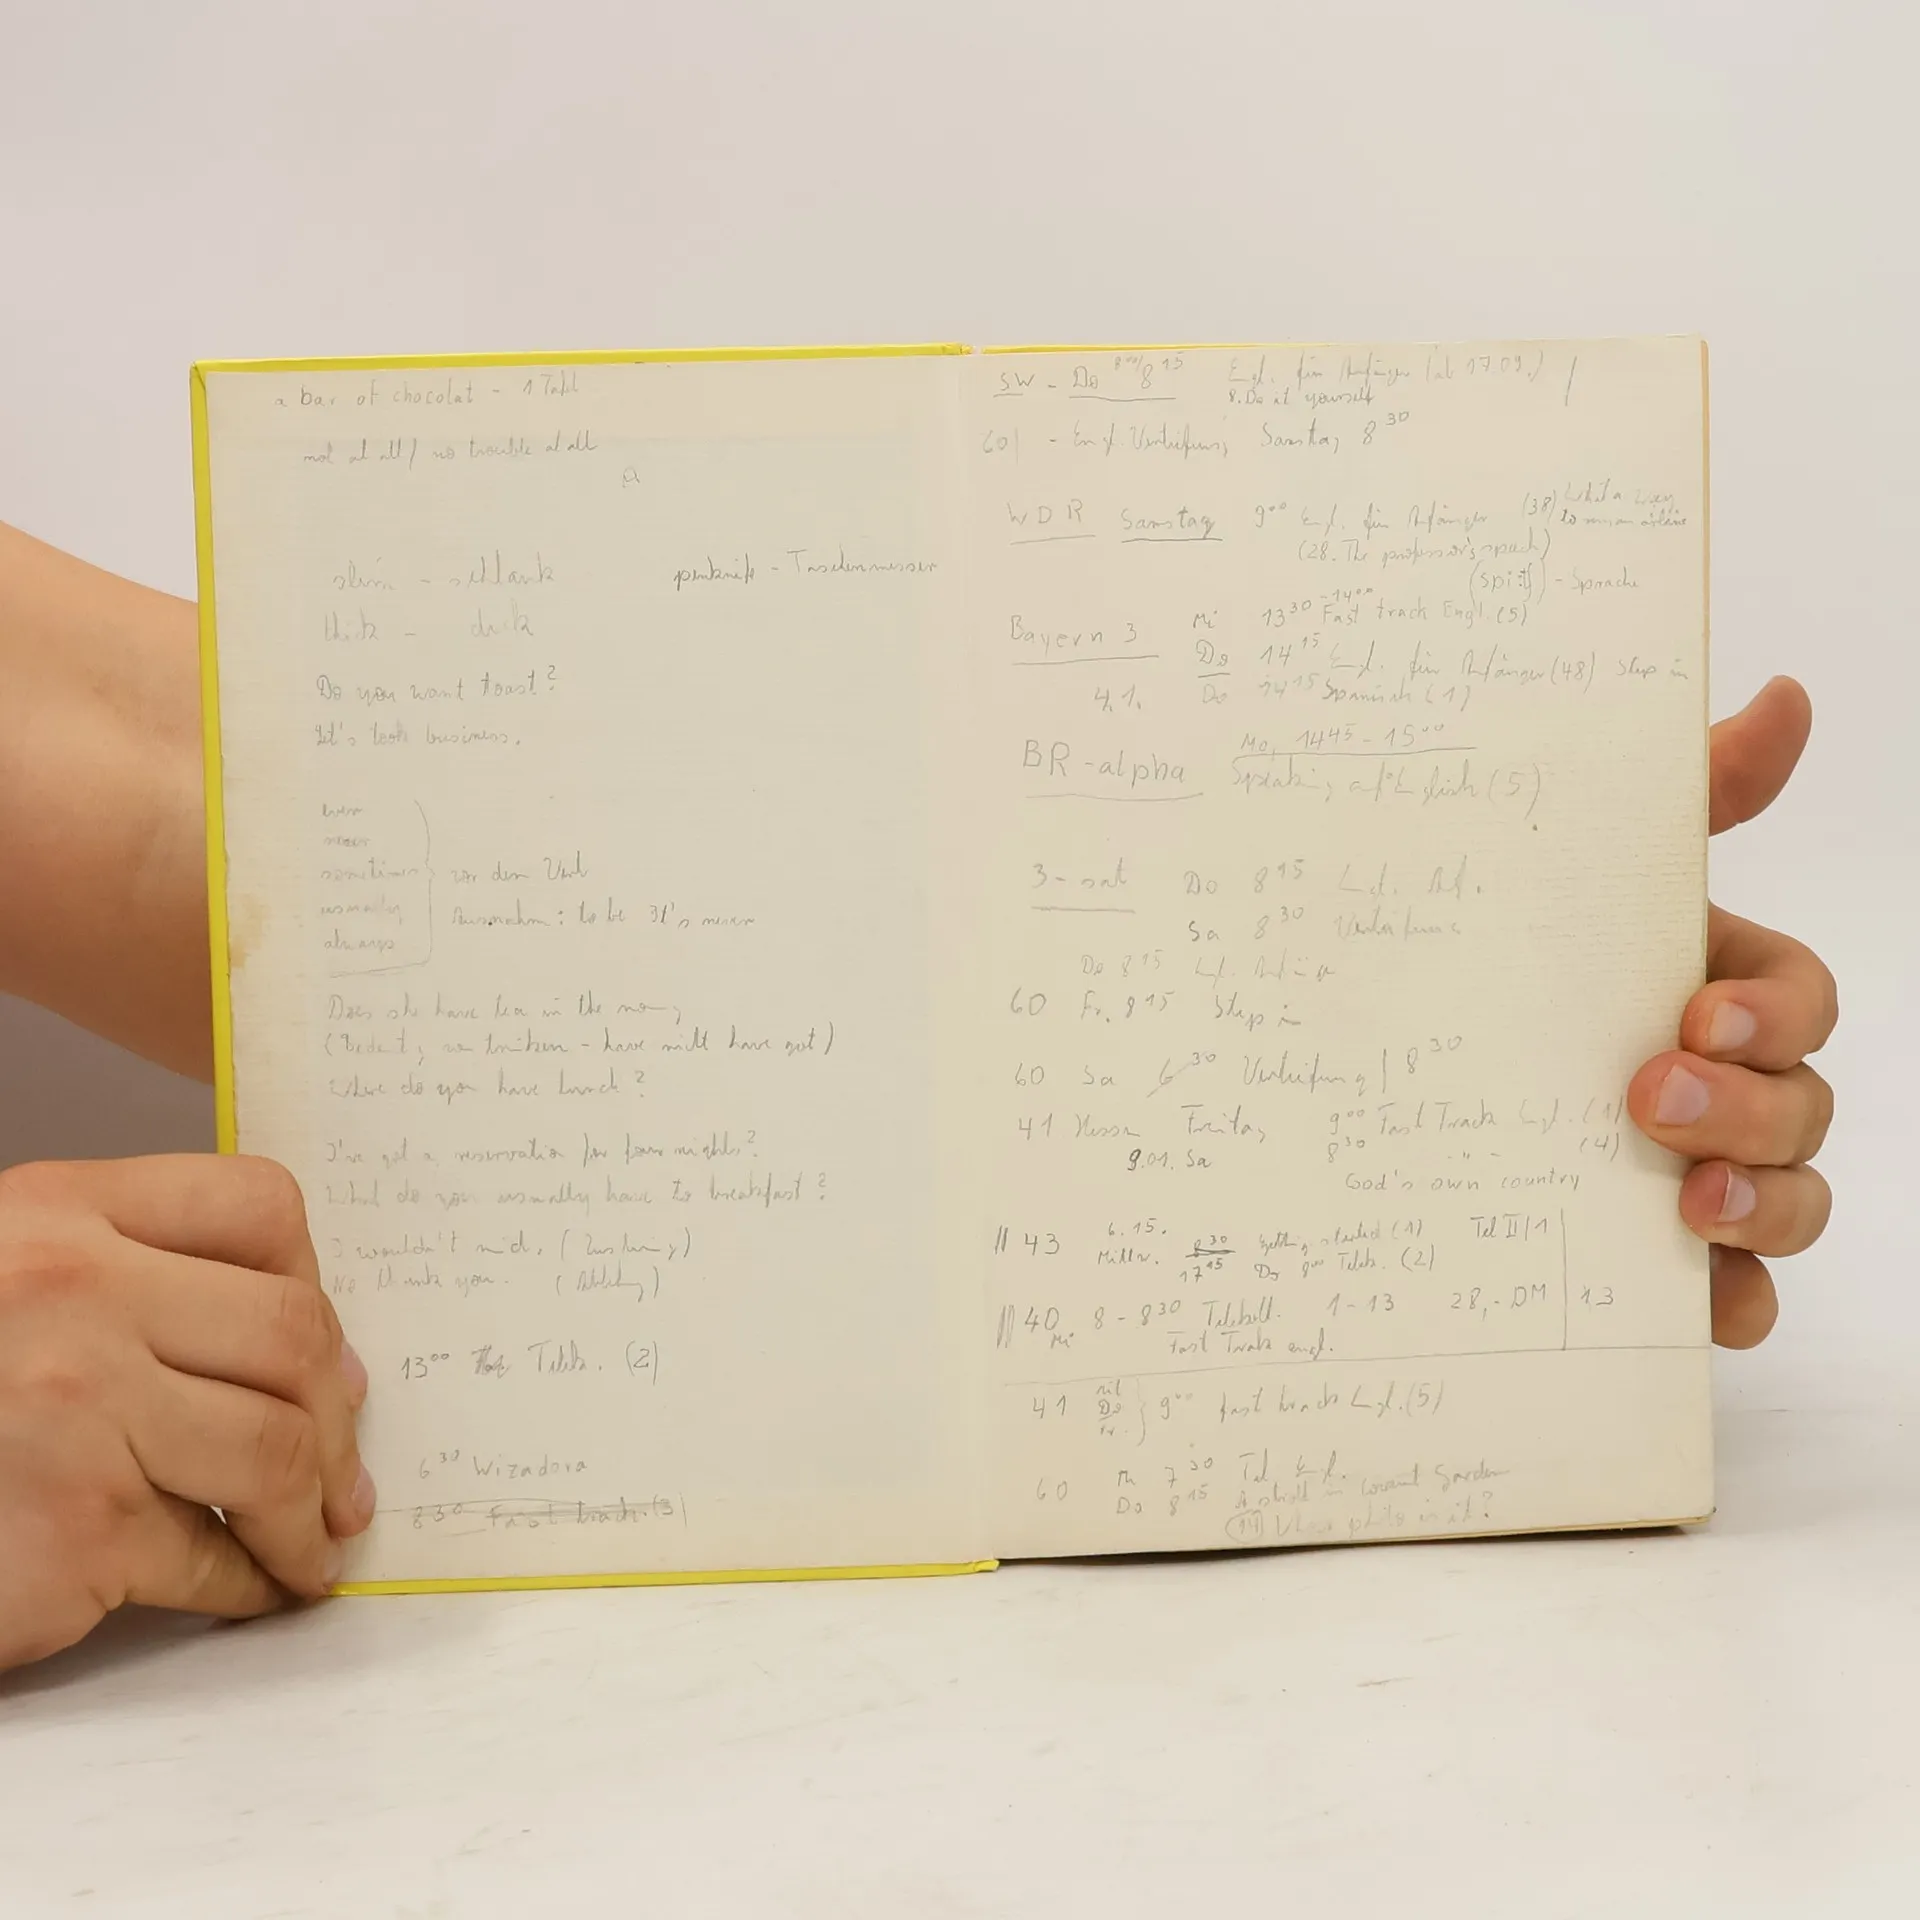 a bar of chocolat - 1 Tafel
not at all / no trouble at all
slim - schlank
penknife - Taschenmesser
thick - dick
Do you want toast?
Let's look business.
ever
never
sometimes
usually
always
vor dem Verb
Ausnahme: to be It's never
Does she have tea in the
have nicht have got)
Where do you have lunch?
I've got a reservation for four nights?
What do you usually have to breakfast?
I wouldn't mind.
No thank you.
13⁰⁰ Telek. (2)
6³⁰ Wizadora
8³⁰ Fast track (3)
SW - Do 8⁰⁰/8¹⁵ Engl. für Anfänger (ab 17.09.)
8. Do it yourself
60 - Engl. Vertiefung Samstag 8³⁰
WDR Samstag 9⁰⁰ Engl. für Anfänger (38) What a way
to run an airline
(28. The professor's speach)
[spi:tʃ] - Sprache
Bayern 3 Mi 13³⁰ - 14⁰⁰ Fast track Engl. (5)
Do 14¹⁵ Engl. für Anfänger (48) Step in
4.1. Do 14¹⁵ Spanisch (1)
BR-alpha Mo, 14⁴⁵ - 15⁰⁰
Speaking of English (5)
3-sat Do 8¹⁵ Engl. Anf.
Sa 8³⁰ Vertiefung
Do 8¹⁵ Engl. Anfänger
60 Fr. 8¹⁵ Step in
60 Sa 6³⁰ Vertiefung | 8³⁰
41 Hessen Freitag 9⁰⁰ Fast Track Engl. (1)
9.01. Sa 8³⁰ - " - (4)
God's own country
43 6.15. 8³⁰ Getting started (1) Tel II/1
Mittw. 17¹⁵ Do 8⁰⁰ Telek. (2)
40 Mi 8 - 8³⁰ Telekoll. 1-13 28,- DM 13
Fast Track engl.
41 Do Fr. 9⁰⁰ fast track Engl. (5)
60 7³⁰ Tel Engl.
Do 8¹⁵ A stroll in Covent Garden